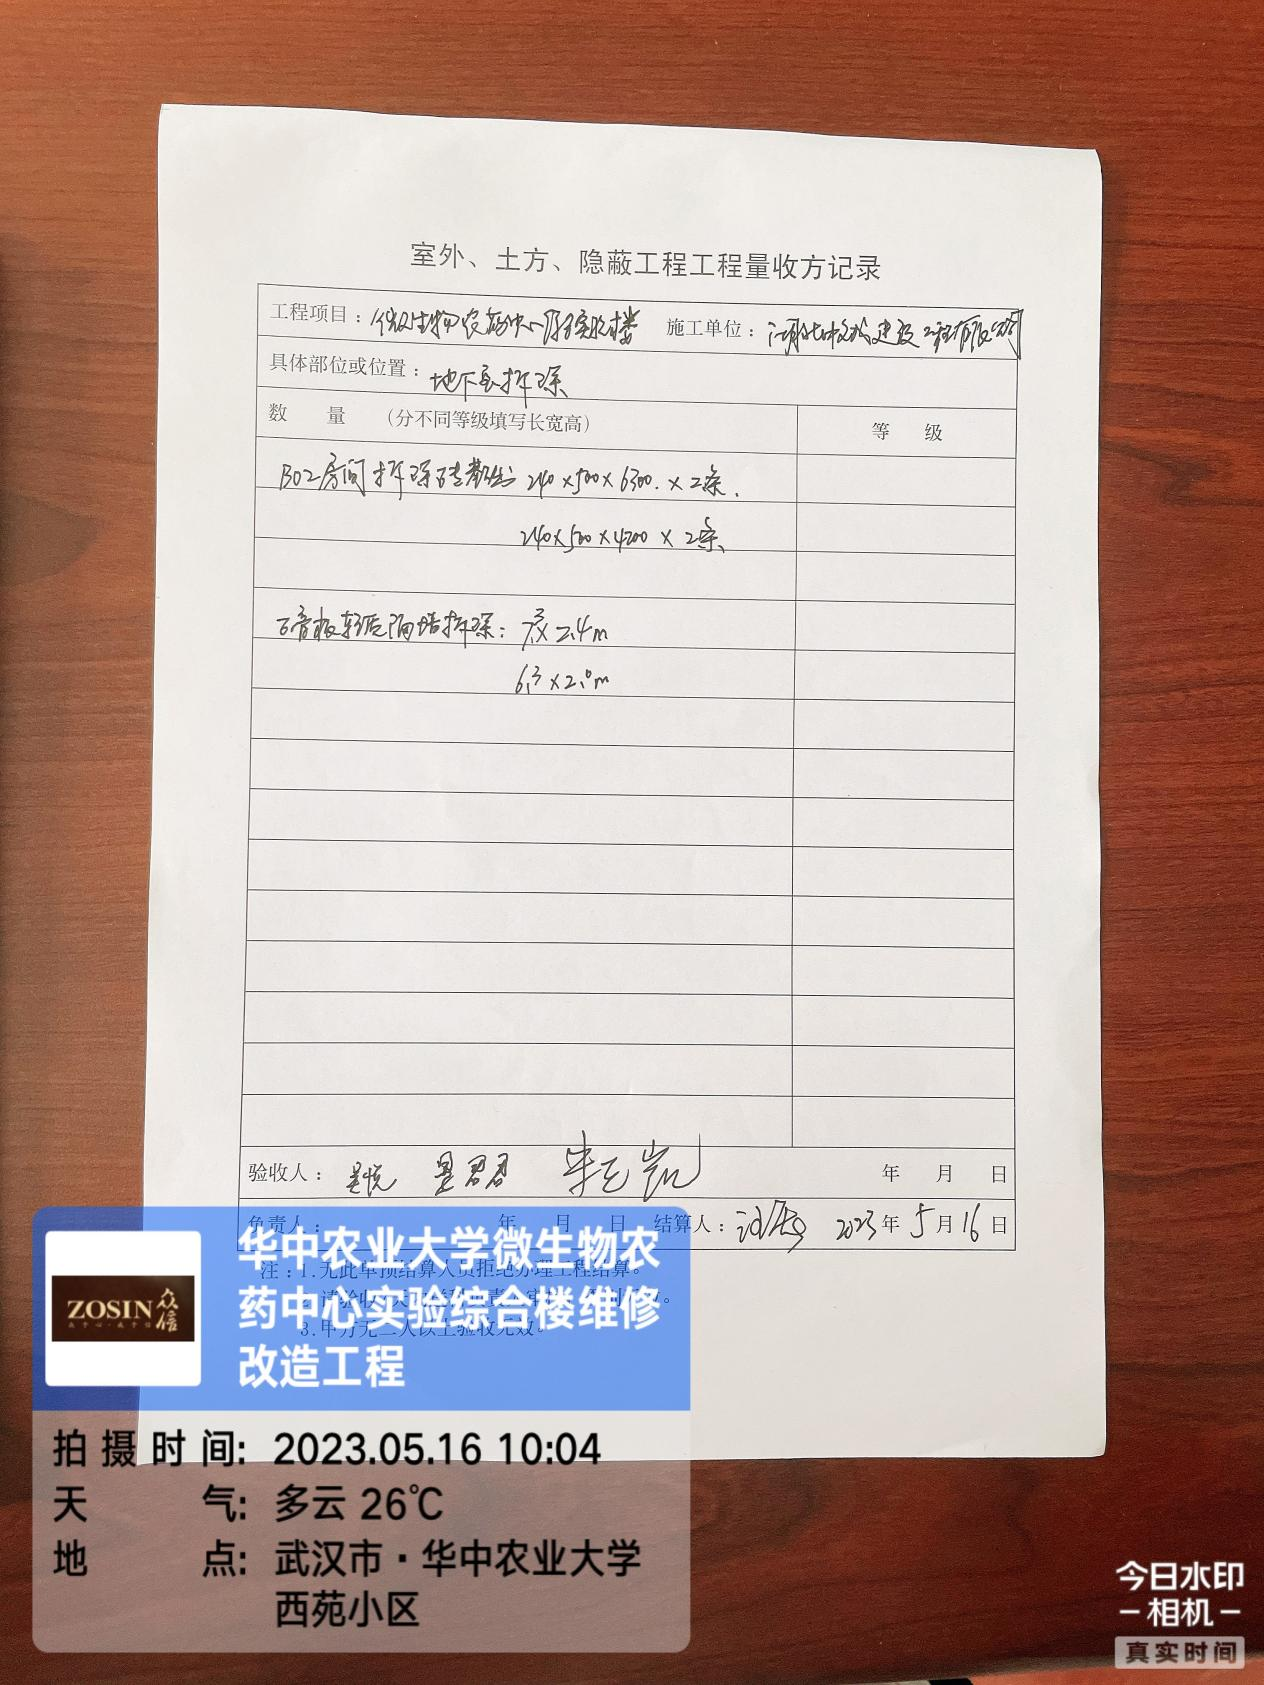 室外、土方、隐蔽工程工程量收方记录
工程项目：微生物农药中心 实验楼 施工单位：湖北中 建设工程有限公司
具体部位或位置：地下室拆除
数 量 （分不同等级填写长宽高） 等 级
B02房间拆除砖 240×500×6300.×2条.
240×500×4200×2条、
石膏板轻质隔墙拆除： ×2.4m
6.3×2.0m
验收人： 年 月 日
负责人： 年 月 日 结算人： 2023年5月16日
注：1.无此单预结算人员拒绝办理工程结算。
3.甲方无二人以上验收无效。
ZOSIN众信
华中农业大学微生物农
药中心实验综合楼维修
改造工程
拍摄时间：2023.05.16 10:04
天 气：多云 26℃
地 点：武汉市·华中农业大学
西苑小区
今日水印
相机
真实时间